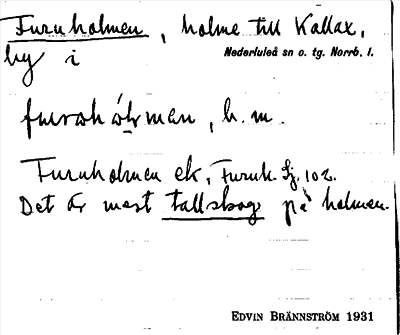 Furuholmen, holme till Kallax,
by i Nederluleå sn o. tg. Norrb. l.
b. m.
Furuholmen ek, Furuh. Sj. 102.
Det är mest tallskog på holmen.
EDVIN BRÄNNSTRÖM 1931